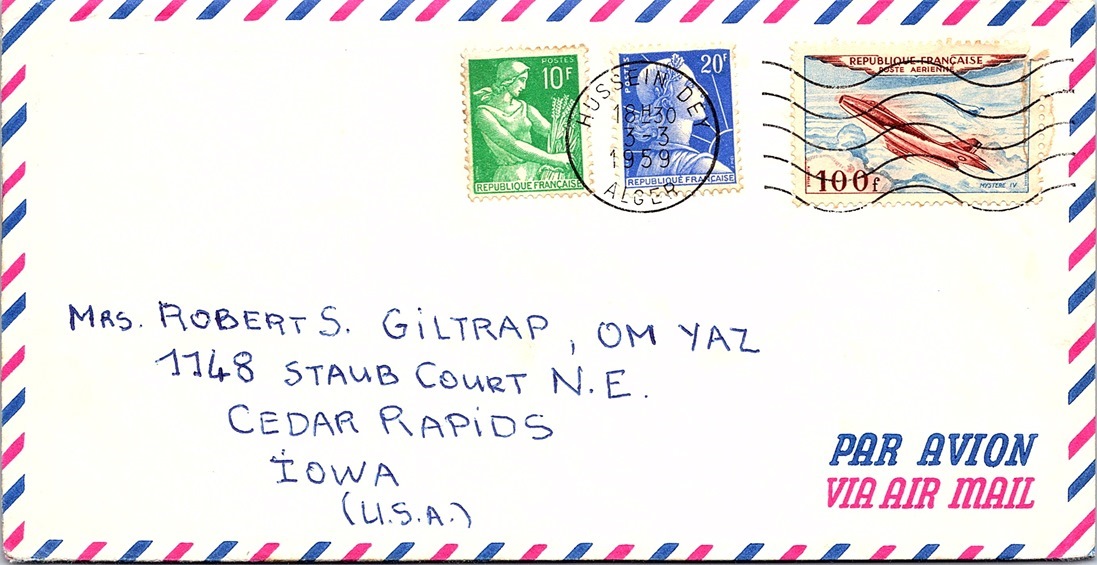 POSTES
10F
REPUBLIQUE FRANÇAISE
POSTES
20F
REPUBLIQUE FRANÇAISE
HUSSEIN DEY
18H30
3-3
1959
ALGER
REPUBLIQUE FRANÇAISE
POSTE AERIENNE
100f
MYSTERE IV
MRS. ROBERT S. GILTRAP, OM YAZ
1148 STAUB COURT N.E.
CEDAR RAPIDS
IOWA
(U.S.A.)
PAR AVION
VIA AIR MAIL